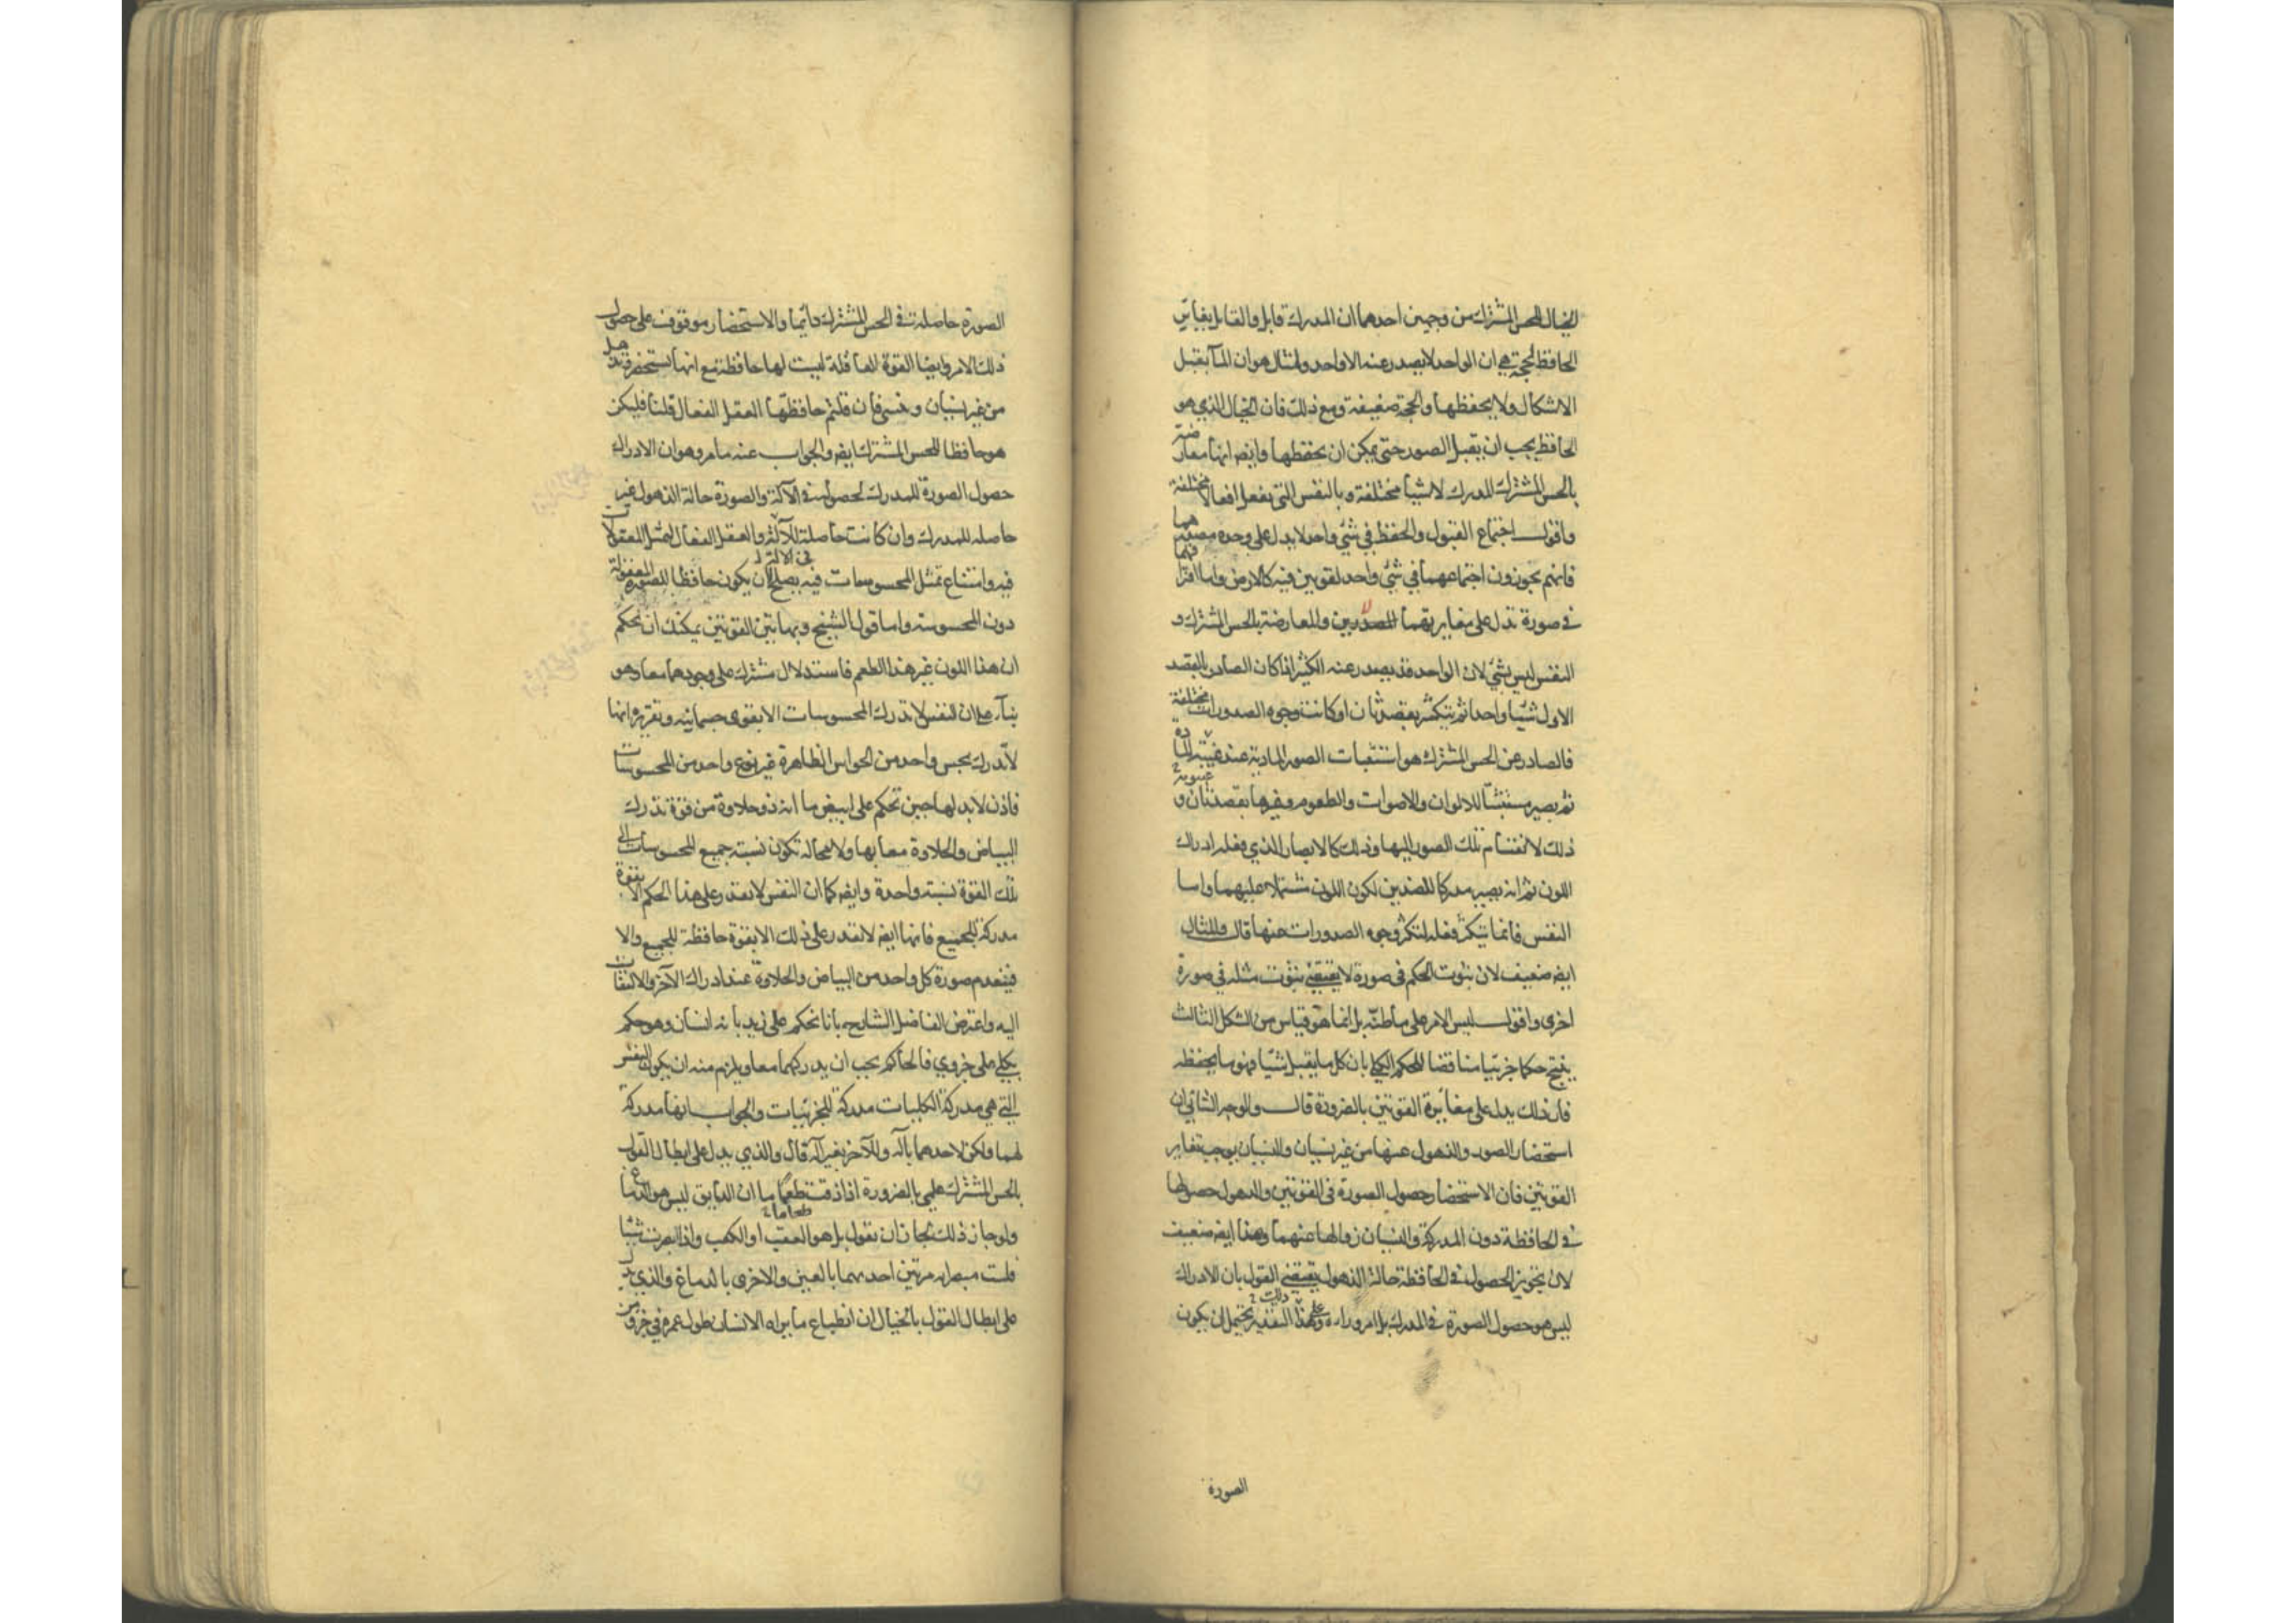 الخيال للحس المشترك من وجهين احدهما ان المدرك قابل والقابل يغاير
الحافظ لحجة هي ان الواحد لا يصدر عنه الا واحد ولمثال هو ان الماء يقبل
الاشكال ولا يحفظها والحجة ضعيفة ومع ذلك فان الخيال الذي هو
الحافظ يجب ان يقبل الصور حتى يمكن ان يحفظها وايضه انها معارضة
بالحس المشترك المدرك لاشيا مختلفة وبالنفس التي تفعل افعالا مختلفة
واقول اجتماع القبول والحفظ في شئ واحد لا يدل على وحدة مصدرهما
فانهم يجوزون اجتماعهما في شئ واحد لقوتين فيه كالارض واما افتراقهما
في صورة تدل على مغايرتهما للمصدرين والمعارضة بالحس المشترك و
النفس ليس بشئ لان الواحد قد يصدر عنه الكثير اذا كان الصادر بالقصد
الاول شيئا واحدا ثم يتكثر بقصد ثان او كانت وجوه الصدورات مختلفة
فالصادر عن الحس المشترك هو استثبات الصور المادية عند غيبة المادة
ثم يصير مستثبتا للالوان والاصوات والطعوم وغيرها بقصد ثان و
ذلك لانقسام تلك الصور اليها وذلك كالابصار الذي فعله ادراك
اللون ثم انه يصير مدركا للضدين لكون اللون مشتملا عليهما واما
النفس فانما يتكثر فعله لتكثر وجوه الصدورات عنها قال والمثال
ايضه ضعيف لان ثبوت الحكم في صورة لا يقتضي ثبوت مثله في صورة
اخرى واقول ليس الامر على ما ظنه بل انما هو قياس من الشكل الثالث
ينتج حكما جزئيا مناقضا للحكم الكلي بان كل ما يقبل شيئا فهو ما يحفظه
فان ذلك يدل على مغايرة القوتين بالضرورة قال والوجه الثاني ان
استحضار الصور والذهول عنها من غير نسيان والنسيان يوجب تغاير
القوتين فان الاستحضار حصول الصورة في القوتين والذهول حصولها
في الحافظة دون المدركة والنسيان زوالها عنهما وهذا ايضه ضعيف
لان تجويز الحصول في الحافظة حالة الذهول يقتضي القول بان الادراك
ليس هو حصول الصورة في المدرك بل امر وراءه وعلى هذا التقدير يحتمل ان يكون
الصورة
الصورة حاصلة في الحس المشترك دائما والاستحضار موقوف على حصول
ذلك الامر وايضا القوة العاقلة ليست لها حافظة مع انها تستحضر وتذهل
من غير نسيان وتنسى فان قلتم حافظتها العقل الفعال قلنا فليكن
هو حافظا للحس المشترك ايضه والجواب عنه ما مر وهو ان الادراك
حصول الصورة للمدرك لحصوله في الآلة والصورة حالة الذهول غير
حاصله للمدرك وان كانت حاصلة للآلة والعقل الفعال لتمثل المعقولات
فيه وامتناع تمثل المحسوسات فيه يصلح لان يكون حافظا للصورة المعقولة
دون المحسوسة واما قول الشيخ وبهاتين القوتين يمكنك ان تحكم
ان هذا اللون غير هذا الطعم فاستدلال مشترك على وجودهما معا وهو
بناء على ان النفس لا تدرك المحسوسات الا بقوى جسمانيه وتقريره انها
لا تدرك بحس واحد من الحواس الظاهرة غير نوع واحد من المحسوسات
فاذن لا بد لها حين تحكم على ابيض ما انه ذو حلاوة من قوة تدرك
البياض والحلاوة معا بها ولا محالة تكون نسبته جميع المحسوسات الى
تلك القوة نسبته واحدة وايضه كما ان النفس لا تقدر على هذا الحكم الا بقوة
مدركة للجميع فانها ايضه لا تقدر على ذلك الا بقوة حافظة للجميع والا
فينعدم صورة كل واحد من البياض والحلاوة عند ادراك الآخر والالتفات
اليه واعترض الفاضل الشارح بانا نحكم على زيد بانه انسان وهو حكم
بكلي على جزوي فالحاكم يجب ان يدركهما معا ويلزم منه ان يكون النفس
التي هي مدركة الكليات مدركة للجزئيات والجواب انها مدركة
لهما ولكن لاحدهما بآلة وللآخر بغير آلة قال والذي يدل على ابطال القول
بالحس المشترك علمي بالضرورة اذا ذقت طعما ما ان الذايق ليس هو الدماغ
ولو جاز ذلك لجاز ان نقول بل هو العقب او الكعب واذا ابصرت شيئا
فلست مبصرا مرتين احدهما بالعين والاخرى بالدماغ والذي يدل
على ابطال القول بالخيال ان انطباع ما يراه الانسان طول عمره في جزو من